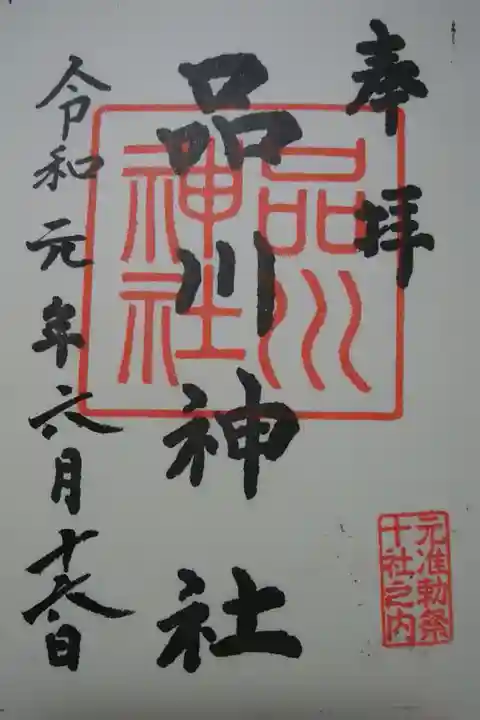 奉拝
品川神社
令和元年六月十六日
品川
神社
元准勅祭
十社之内